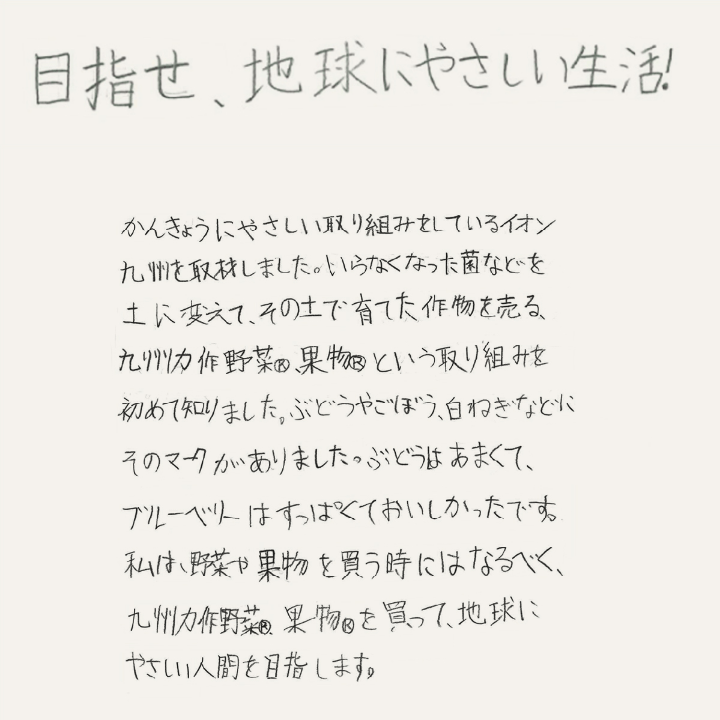 目指せ、地球にやさしい生活!
かんきょうにやさしい取り組みをしているイオン
九州を取材しました。いらなくなった菌などを
土に変えて、その土で育てた作物を売る、
九州力作野菜®、果物®という取り組みを
初めて知りました。ぶどうやごぼう、白ねぎなどに
そのマークがありました。ぶどうはあまくて、
ブルーベリーはすっぱくておいしかったです。
私は、野菜や果物を買う時にはなるべく、
九州力作野菜®果物®を買って、地球に
やさしい人間を目指します。